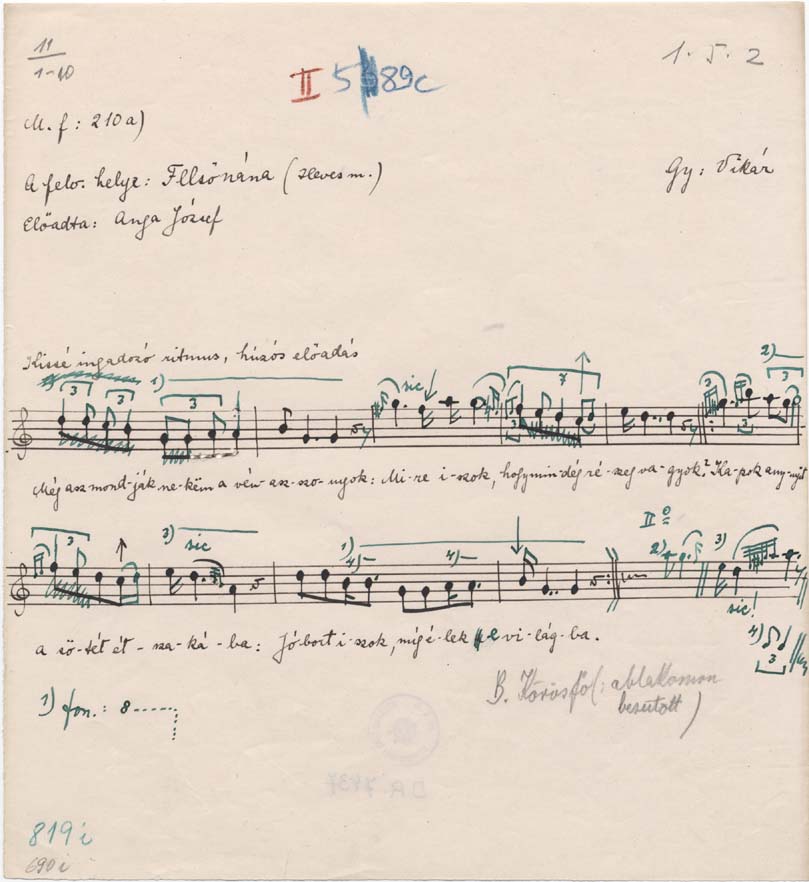 11
1-10
II 5 689c
1. 5. 2
M. f: 210a)
A felv. helye: Felsőnána (Heves m.)
Gy: Vikár
Előadta: Anga József
Kissé ingadozó ritmus, húzós előadás
3 3 1) 3 sic 3 7 3 2) 3
Még asz mond-ják ne-këm a vén asz-szo-nyok: Mi-re i-szok, hogy min-dég ré-szeg va-gyok? Ka-pok any-nyit
3 3) sic 1) 4) 4) II° 2) 3)
sic!
a sö-tét ét-sza-ká-ba: Jó bort i-szok, míg é-lek e vi-lág-ba.
4) 3
1) fon.: 8-----
B. Körösfő (: ablakomon
besütött)
819 i
690 i